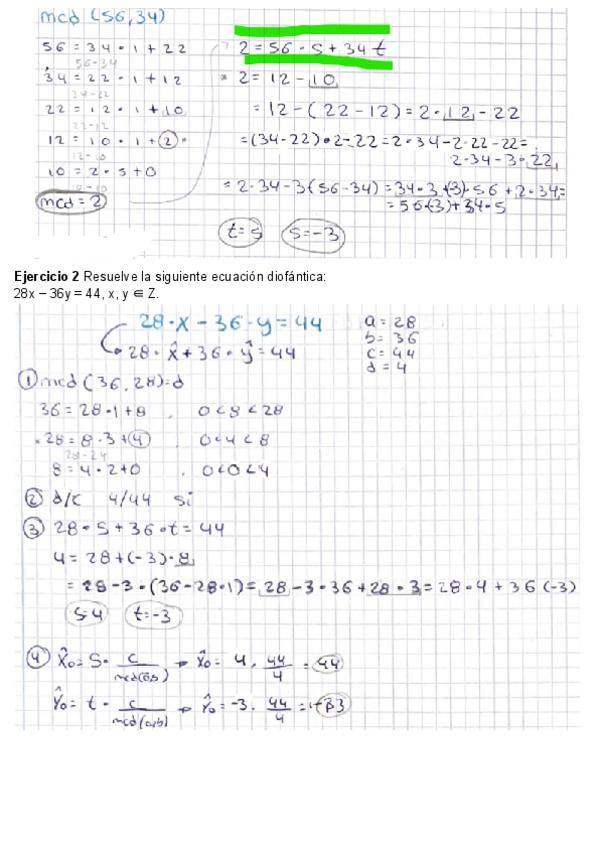 mcd (56,34)
56 = 34 · 1 + 22
56-34
34 = 22 · 1 + 12
34-22
22 = 12 · 1 + 10
22-12
12 = 10 · 1 + 2
12-10
10 = 2 · 5 + 0
mcd = 2
2 = 56 · s + 34 t
2 = 12 - 10
= 12 - (22 - 12) = 2 · 12 - 22
= (34 - 22) · 2 - 22 = 2 · 34 - 2 · 22 - 22 =
2 · 34 - 3 · 22
= 2 · 34 - 3 (56 - 34) = 34 · 3 + (-3) · 56 + 2 · 34 =
= 56 (-3) + 34 · 5
t = 5 s = -3
Ejercicio 2 Resuelve la siguiente ecuación diofántica:
28x – 36y = 44, x, y ∈ Z.
28 · x - 36 · y = 44
28 · x̂ + 36 · ŷ = 44
a = 28
b = 36
c = 44
d = 4
① mcd (36, 28) = d
36 = 28 · 1 + 8 , 0 < 8 < 28
28 = 8 · 3 + 4 , 0 < 4 < 8
28-24
8 = 4 · 2 + 0 , 0 < 0 < 4
② d/c 4/44 si
③ 28 · s + 36 · t = 44
4 = 28 + (-3) · 8
= 28 - 3 · (36 - 28 · 1) = 28 - 3 · 36 + 28 · 3 = 28 · 4 + 36 (-3)
s=4 t=-3
④ x̂₀ = s · c/mcd(a,b) → x̂₀ = 4 · 44/4 = 44
ŷ₀ = t · c/mcd(a,b) → ŷ₀ = -3 · 44/4 = -33